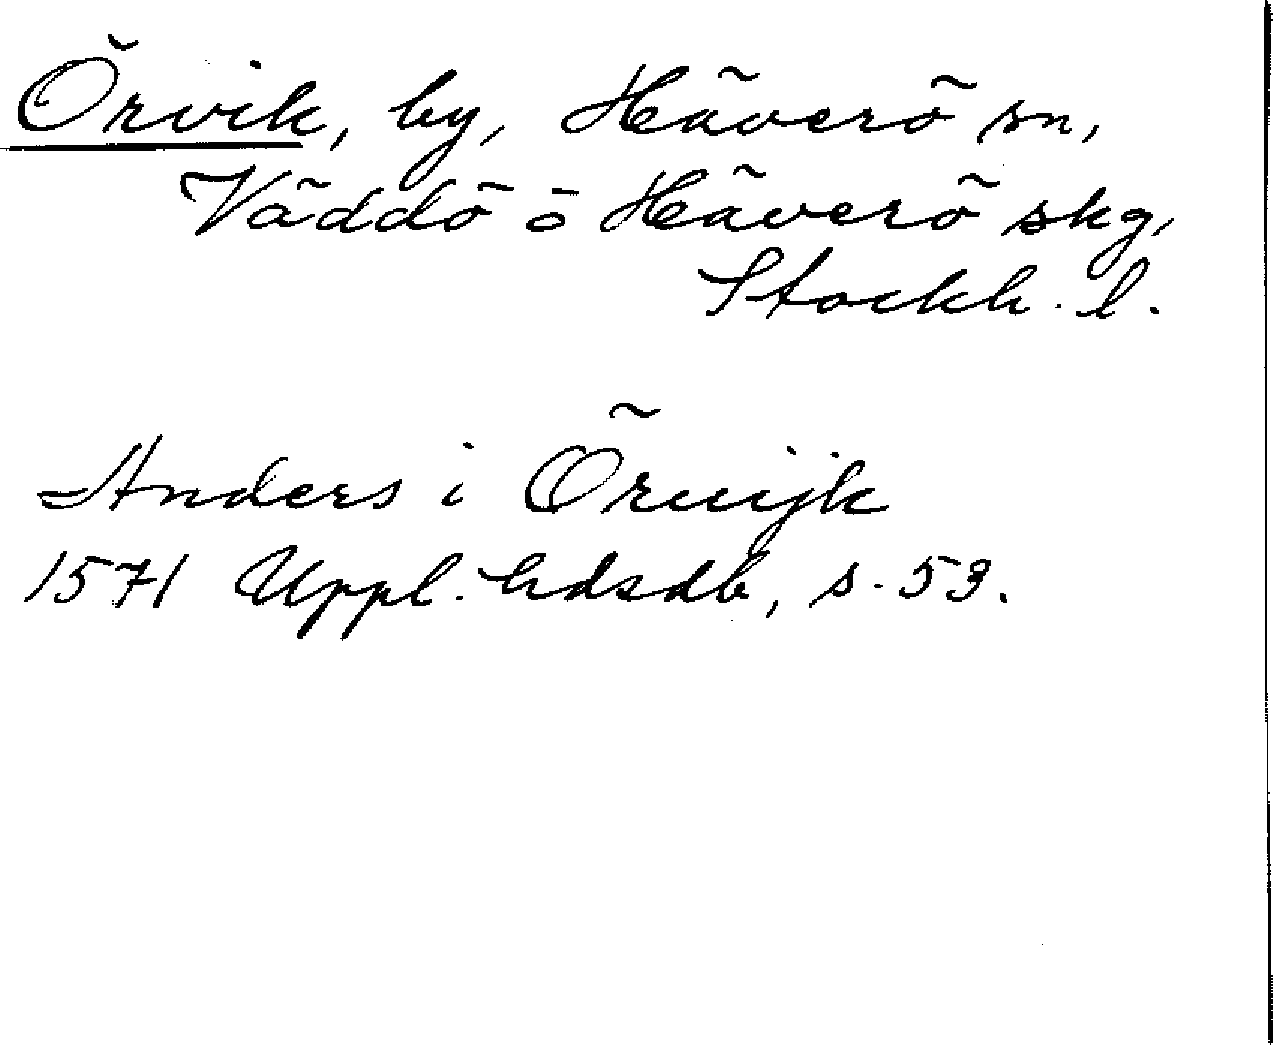 Örvik, by, Häverö sn,
Väddö o Häverö skg,
Stockh. l.
Anders i Örwijk
1571 Uppl. hdsdb, s. 53.